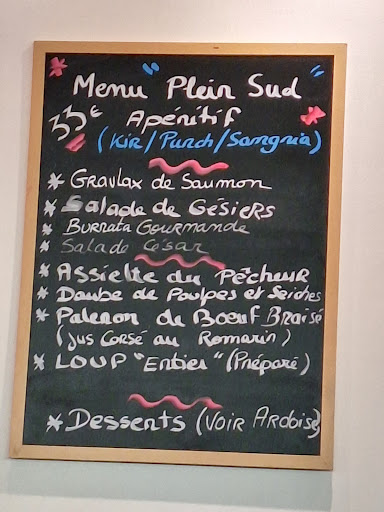 Menu "Plein Sud"
33€ Apéritif
(Kir/Punch/Sangria)
* Gravlax de Saumon
* Salade de Gésiers
* Burrata Gourmande
* Salade César
* Assiette du Pêcheur
* Daube de Poulpes et Seiches
* Paleron de Bœuf Braisé
(jus Corsé au Romarin)
* LOUP "Entier" (Préparé)
* Desserts (Voir Ardoise)